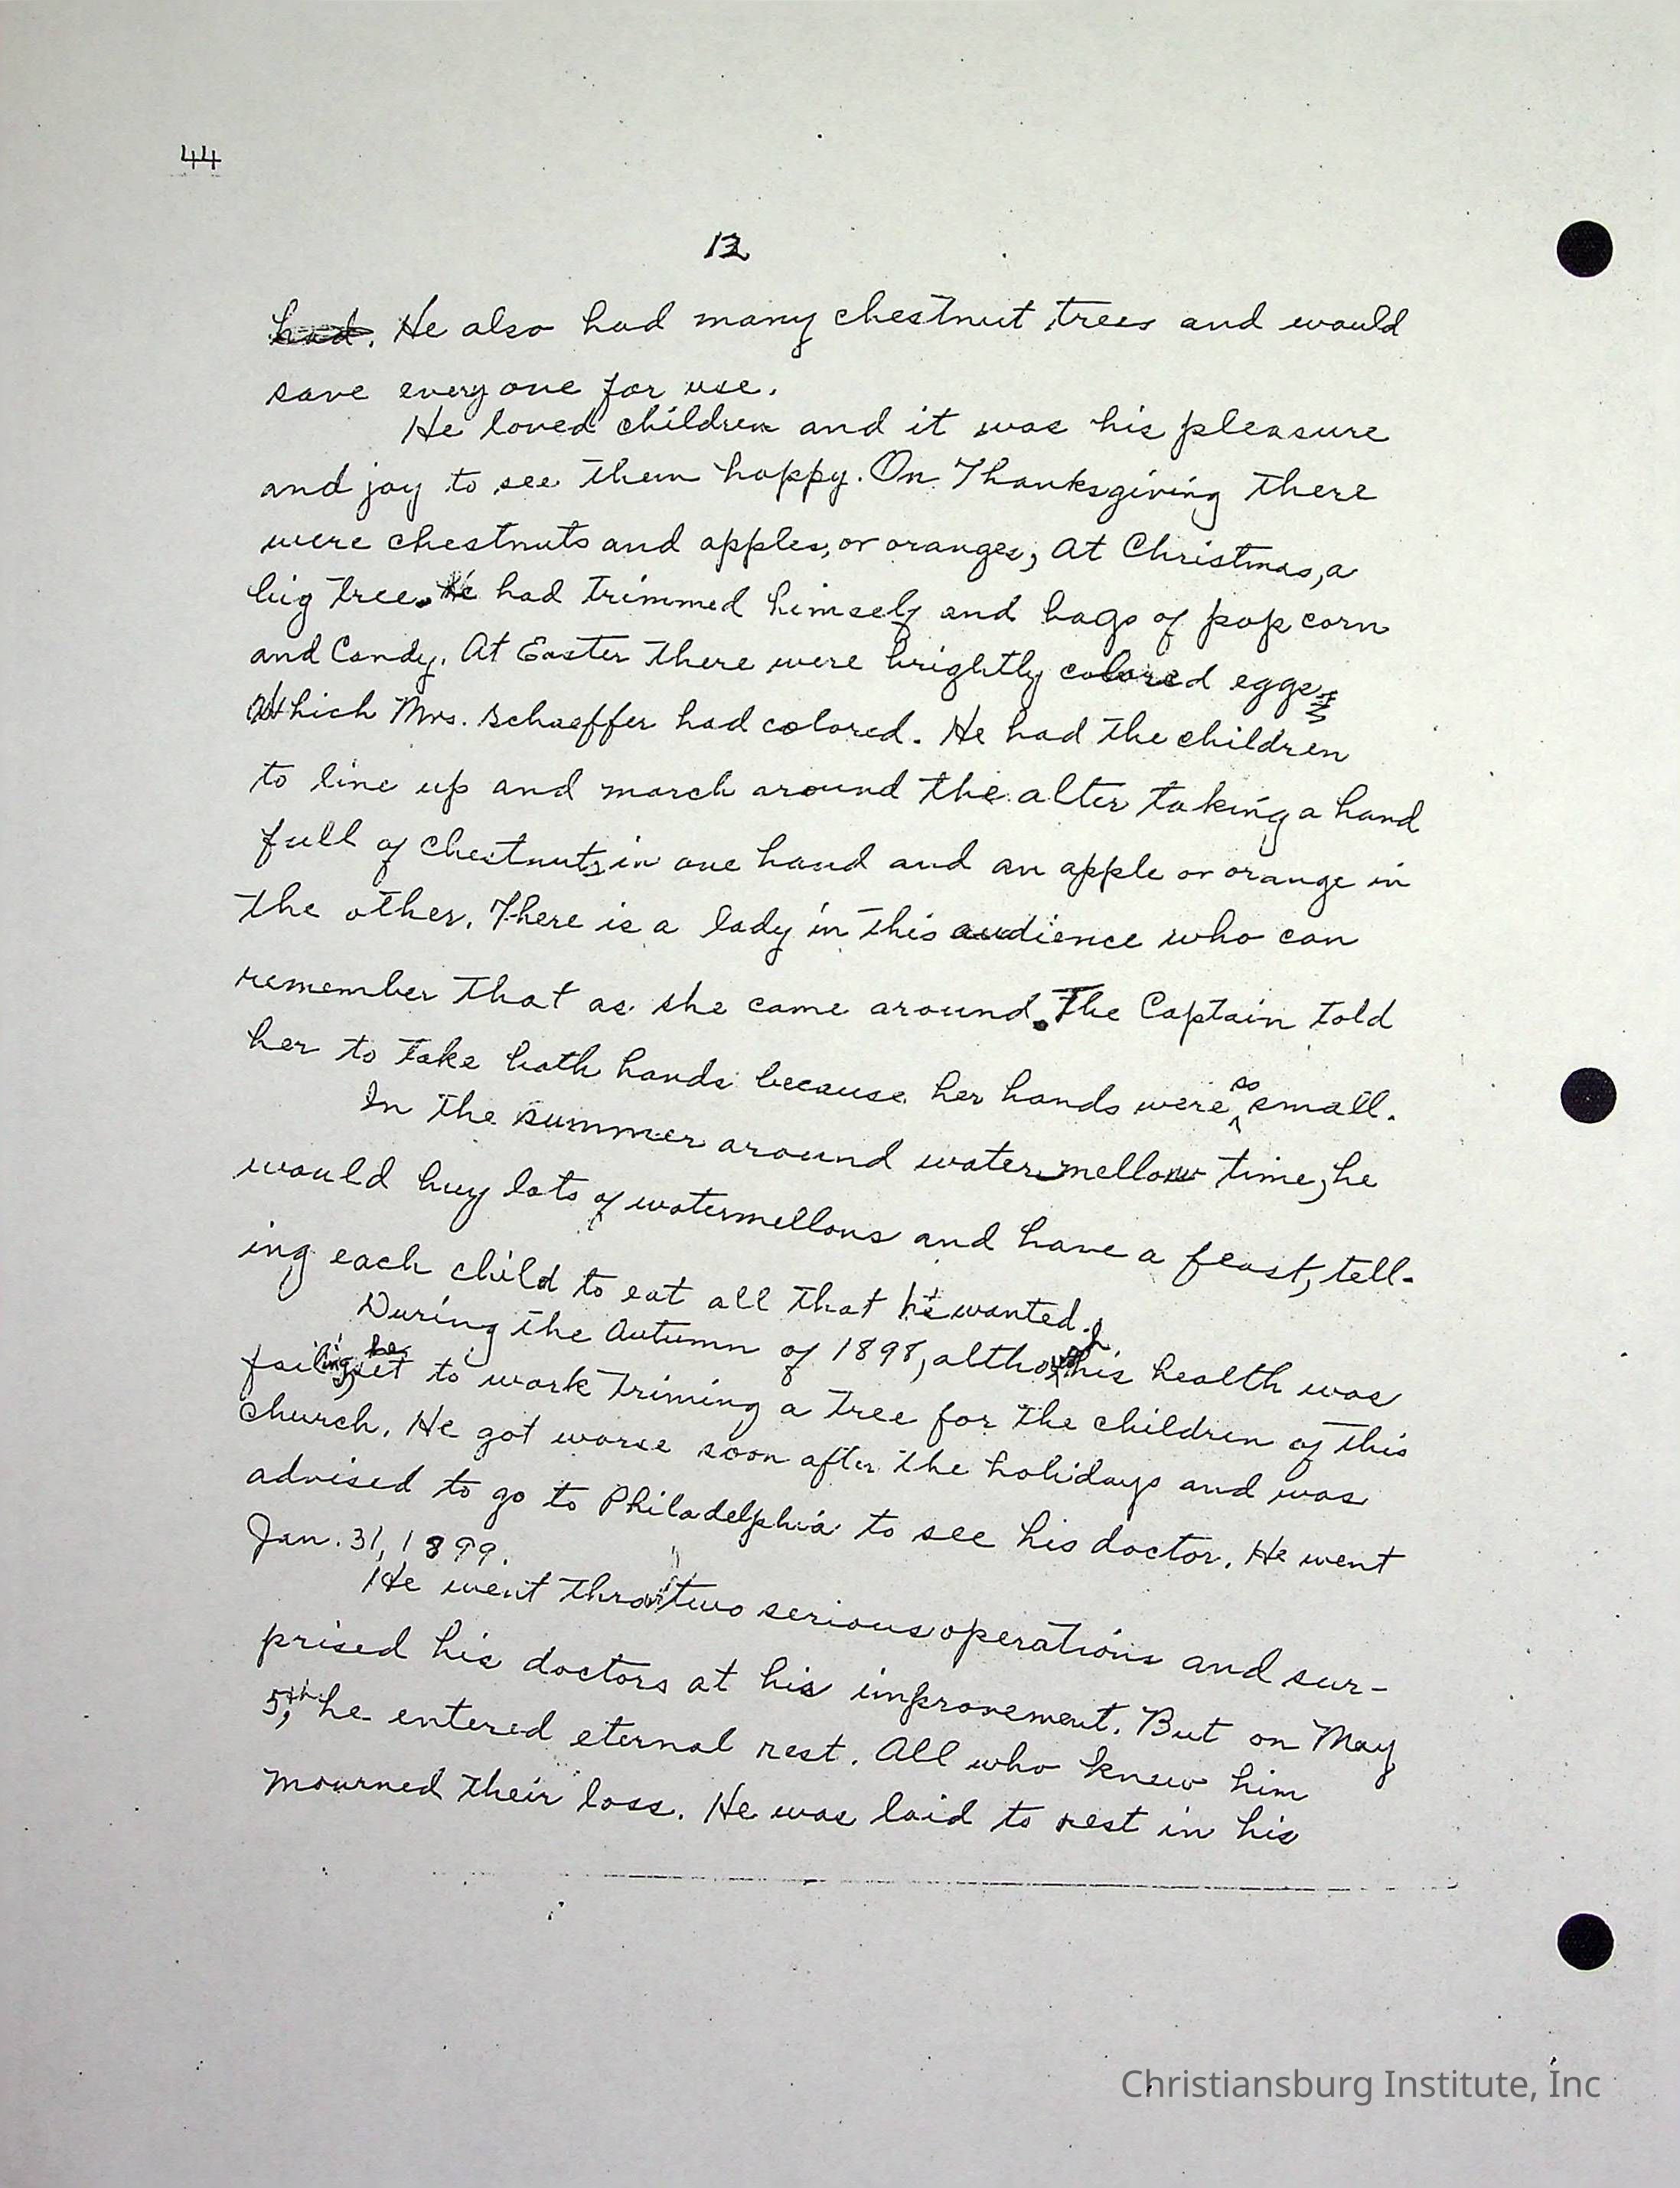 44
12
had. He also had many chestnut trees and would
save every one for use.
He loved children and it was his pleasure
and joy to see them happy. On Thanksgiving there
were chestnuts and apples, or oranges, At Christmas, a
big tree. He had trimmed himself and bags of pop corn
and Candy. At Easter there were brightly colored eggs
Which Mrs. Schaeffer had colored. He had the children
to line up and march around the alter taking a hand
full of chestnuts in one hand and an apple or orange in
the other. There is a lady in this audience who can
remember that as she came around. The Captain told
her to take both hands because her hands were so small.
In the summer around watermellow time, he
would buy lots of watermellons and have a feast, tell-
ing each child to eat all that he wanted.
During the Autumn of 1898, although his health was
failing, he set to work triming a tree for the children of this
church. He got worse soon after the holidays and was
advised to go to Philadelphia to see his doctor. He went
Jan. 31, 1899.
He went thro two serious operations and sur-
prised his doctors at his improvement. But on May
5th, he entered eternal rest. All who knew him
mourned their loss. He was laid to rest in his
Christiansburg Institute, Inc